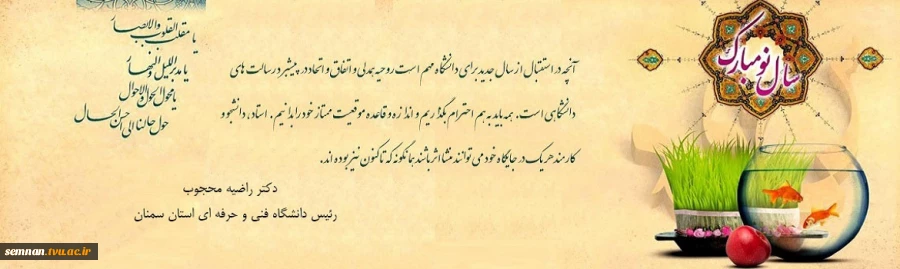 سال نو مبارک
یا مقلب القلوب والابصار
یا مدبر اللیل والنهار
یا محول الحول والاحوال
حول حالنا الی احسن الحال
آنچه در استقبال از سال جدید برای دانشگاه مهم است روحیه همدلی و اتفاق و اتحاد در پیشبرد رسالت های
دانشگاهی است. همه باید به هم احترام بگذاریم و اندازه و قاعده موقعیت ممتاز خود را بدانیم. استاد، دانشجو و
کارمند هر یک در جایگاه خود می توانند منشا اثر باشند همانگونه که تاکنون نیز بوده اند.
دکتر راضیه محجوب
رئیس دانشگاه فنی و حرفه ای استان سمنان
semnan.tvu.ac.ir